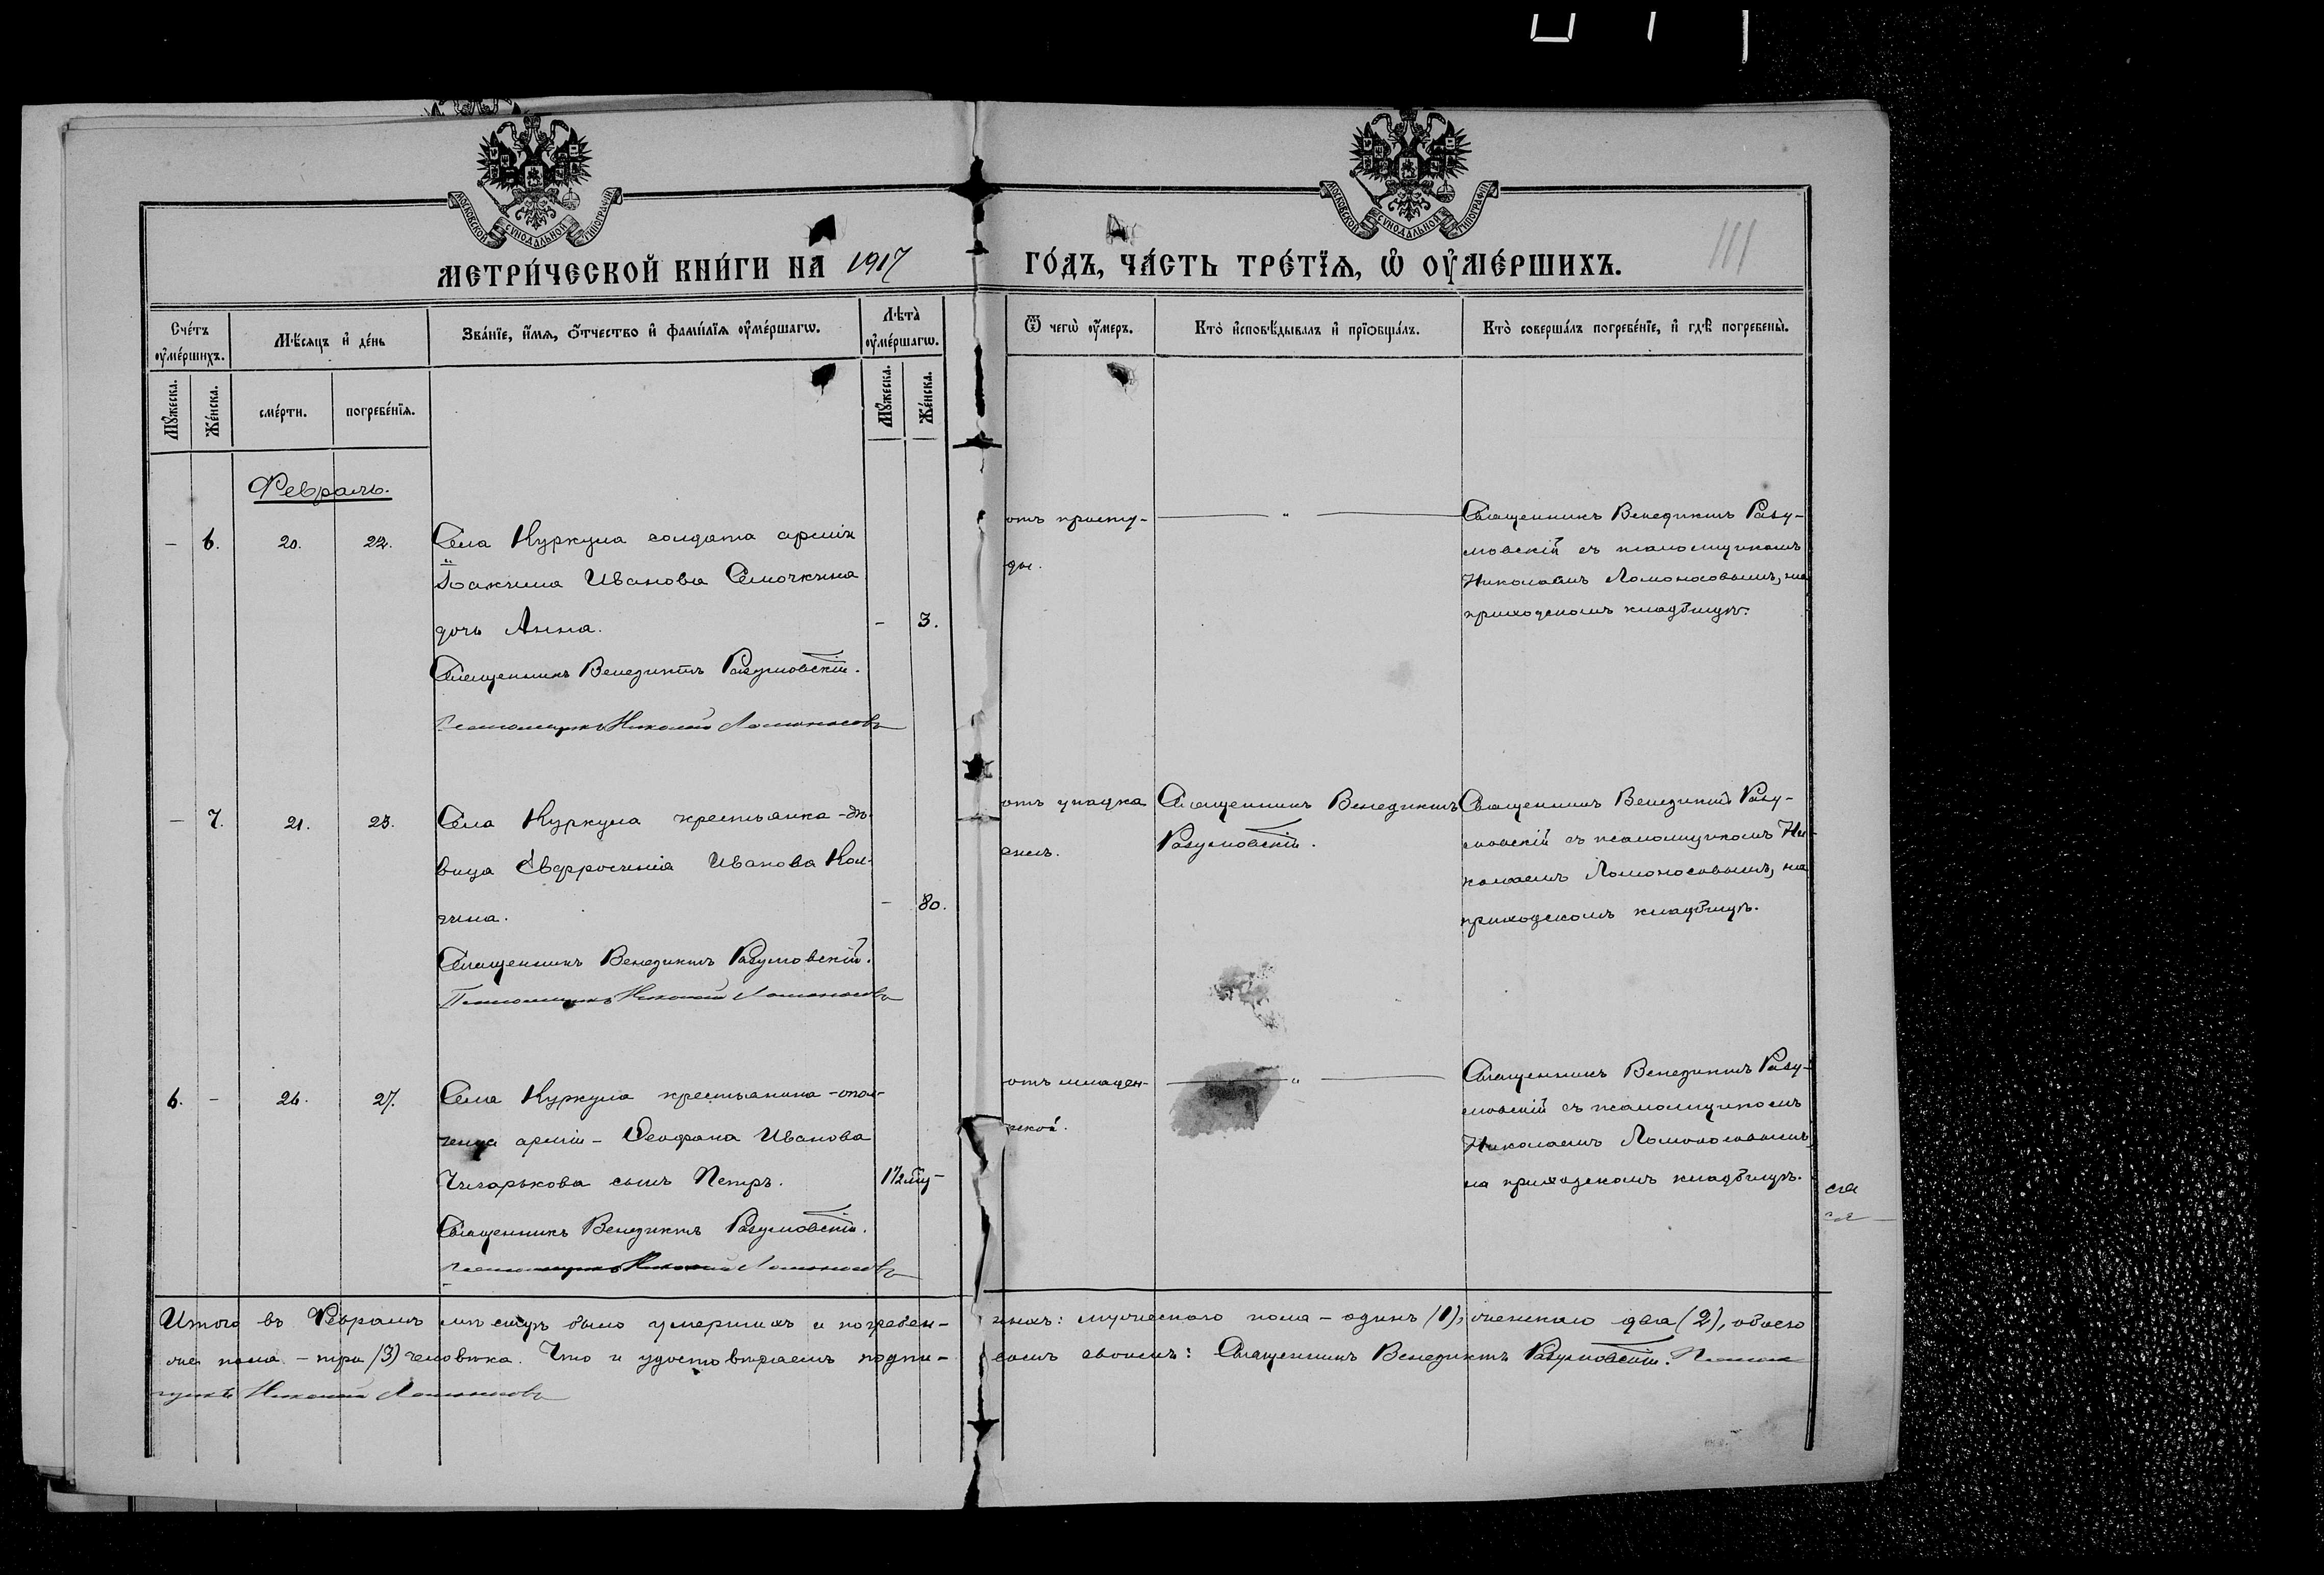 МОСКОВСКОЙ СѴНОДАЛЬНОЙ ТИПОГРАФІИ
МОСКОВСКОЙ СѴНОДАЛЬНОЙ ТИПОГРАФІИ
МЕТРИ́ЧЕСКОЙ КНИ́ГИ НА 1917 ГО́ДЪ, ЧА́СТЬ ТРЕ́ТЇѦ, Ѡ҆ ОУ҆МЕ́РШИХЪ.
111
Сче́тъ оу҆ме́ршихъ.
Мѣ́сѧцъ и҆ де́нь
Зва́нїе, и҆́мѧ, ѻ҆́тчество и҆ фами́лїѧ оу҆ме́ршагѡ.
Лѣта̀ оу҆ме́ршагѡ.
Ѿ чегѡ̀ оу҆́меръ.
Кто̀ и҆сповѣ́дывалъ и҆ прїѻбща́лъ.
Кто̀ соверша́лъ погребе́нїе, и҆ гдѣ̀ погребены̀.
Мꙋ́жеска.
Же́нска.
сме́рти.
погребе́нїѧ.
Мꙋ́жеска.
Же́нска.
Февраль.
– 6. 20. 22.
Села Куркула солдата арміи
Іоакима Иванова Семочкина
дочь Анна.
– 3.
Священникъ Венедиктъ Разумовскій.
Псаломщикъ Николай Ломоносовъ
отъ просту-
ды.
— " —
Священникъ Венедиктъ Разу-
мовскій съ псаломщикомъ
Николаемъ Ломоносовымъ, на
приходскомъ кладбищѣ.
– 7. 21. 23.
Села Куркула крестьянка-дѣ-
вица Евфросинія Иванова
чина.
– 80.
Священникъ Венедиктъ Разумовскій.
Псаломщикъ Николай Ломоносовъ
отъ упадка
силъ.
Священникъ Венедиктъ
Разумовскій.
Священникъ Венедиктъ Разу-
мовскій съ псаломщикомъ Ни-
колаемъ Ломоносовымъ, на
приходскомъ кладбищѣ.
6. – 26. 27.
Села Куркула крестьянина-опол-
ченца арміи – Ѳеофана Иванова
Чигарькова сынъ Петръ.
1 1/2
Священникъ Венедиктъ Разумовскій.
Псаломщикъ Николай Ломоносовъ
отъ младен-
ческой.
— " —
Священникъ Венедиктъ Разу-
мовскій съ псаломщикомъ
Николаемъ Ломоносовымъ,
на приходскомъ кладбищѣ.
Итого въ Февралѣ мѣсяцѣ было умершихъ и погребен-ныхъ: мужескаго пола – одинъ (1), женскаго два (2), обоего
же пола – три (3) человѣка. Что и удостовѣряемъ подпи-сомъ своимъ: Священникъ Венедиктъ Разумовскій. Псалом-
щикъ Николай Ломоносовъ